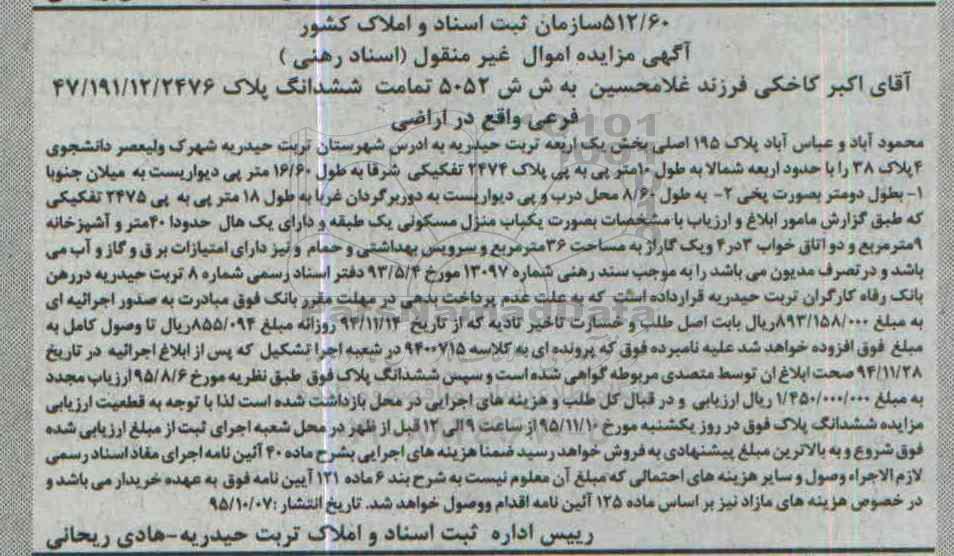 ۵۱۲/۶۰سازمان ثبت اسناد و املاک کشور
آگهی مزایده اموال غیر منقول (اسناد رهنی )
آقای اکبر کاخکی فرزند غلامحسین به ش ش ۵۰۵۲ تمامت ششدانگ پلاک ۴۷/۱۹۱/۱۲/۲۴۷۶
فرعی واقع در اراضی
محمود آباد و عباس آباد پلاک ۱۹۵ اصلی بخش یک اربعه تربت حیدریه به ادرس شهرستان تربت حیدریه شهرک ولیعصر دانشجوی
۴پلاک ۳۸ را با حدود اربعه شمالا به طول ۱۰متر پی به پی پلاک ۲۴۷۴ تفکیکی شرقا به طول ۱۶/۶۰ متر پی دیواریست به میلان جنوبا
۱- بطول دومتر بصورت پخی ۲- به طول ۸/۶۰ محل درب و پی دیواریست به دوربرگردان غربا به طول ۱۸ متر پی به پی ۲۴۷۵ تفکیکی
که طبق گزارش مامور ابلاغ و ارزیاب با مشخصات بصورت یکباب منزل مسکونی یک طبقه و دارای یک هال حدودا ۴۰متر و آشپزخانه
۹مترمربع و دو اتاق خواب ۳در۴ ویک گاراژ به مساحت ۳۶مترمربع و سرویس بهداشتی و حمام و نیز دارای امتیازات برق و گاز و آب می
باشد و در تصرف مدیون می باشد را به موجب سند رهنی شماره ۱۳۰۹۷ مورخ ۹۳/۵/۴ دفتر اسناد رسمی شماره ۸ تربت حیدریه دررهن
بانک رفاه کارگران تربت حیدریه قرارداده است که به علت عدم پرداخت بدهی در مهلت مقرر بانک فوق مبادرت به صدور اجرائیه ای
به مبلغ ۸۹۳/۱۵۸/۰۰۰ریال بابت اصل طلب و خسارت تاخیر تادیه که از تاریخ ۹۴/۱۱/۱۴ روزانه مبلغ ۸۵۵/۰۹۴ریال تا وصول کامل به
مبلغ فوق افزوده خواهد شد علیه نامبرده فوق که پرونده ای به کلاسه ۹۴۰۰۷۱۵ در شعبه اجرا تشکیل که پس از ابلاغ اجرائیه در تاریخ
۹۴/۱۱/۲۸ صحت ابلاغ ان توسط متصدی مربوطه گواهی شده است و سپس ششدانگ پلاک فوق طبق نظریه مورخ ۹۵/۸/۶ ارزیاب مجدد
به مبلغ ۱/۴۵۰/۰۰۰/۰۰۰ ریال ارزیابی و در قبال کل طلب و هزینه های اجرایی در محل بازداشت شده است لذا با توجه به قطعیت ارزیابی
مزایده ششدانگ پلاک فوق در روز یکشنبه مورخ ۹۵/۱۱/۱۰ از ساعت ۹ الی ۱۲ قبل از ظهر در محل شعبه اجرای ثبت از مبلغ ارزیابی شده
فوق شروع و به بالاترین مبلغ پیشنهادی به فروش خواهد رسید ضمنا هزینه های اجرایی بشرح ماده ۴۰ آئین نامه اجرای مفاد اسناد رسمی
لازم الاجراء وصول و سایر هزینه های احتمالی که مبلغ آن معلوم نیست به شرح بند ۶ ماده ۱۲۱ آیین نامه فوق به عهده خریدار می باشد و
در خصوص هزینه های مازاد نیز بر اساس ماده ۱۲۵ آئین نامه اقدام ووصول خواهد شد. تاریخ انتشار :۹۵/۱۰/۰۷
رییس اداره ثبت اسناد و املاک تربت حیدریه-هادی ریحانی
ParsNamadData